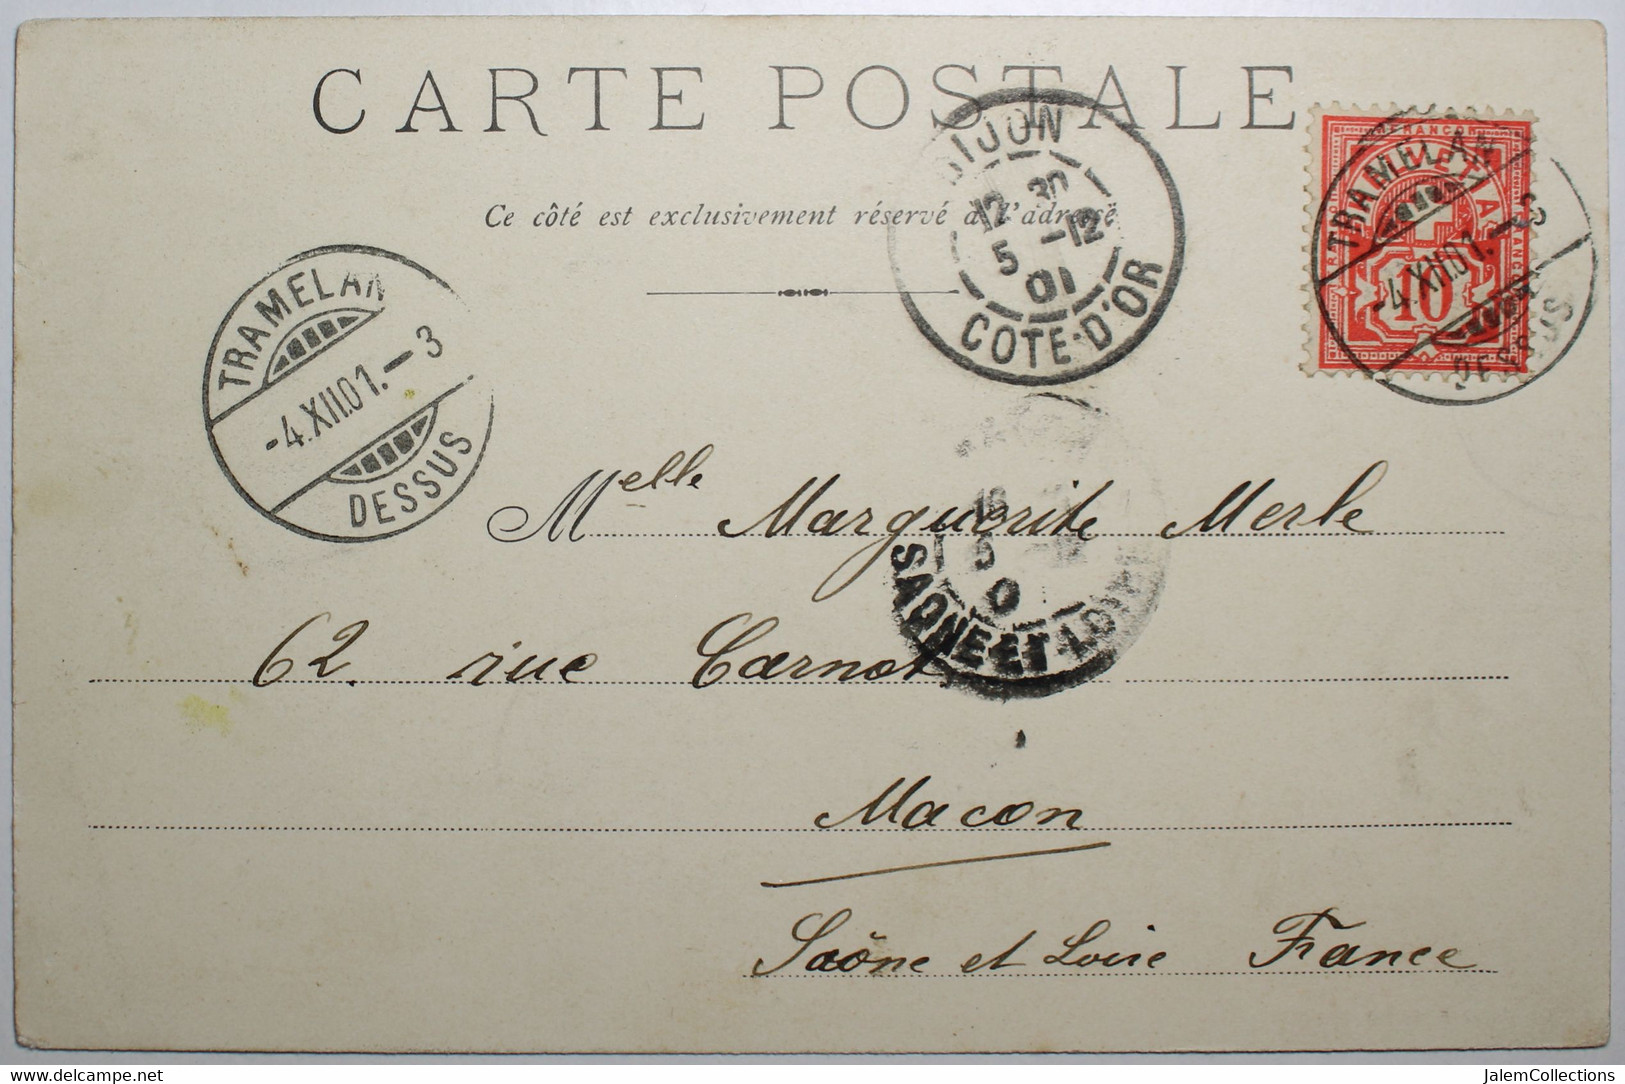 CARTE POSTALE
Ce côté est exclusivement réservé à l'adresse
TRAMELAN
-4.XII.01.-3
DESSUS
DIJON
12 30
5 -12
01
COTE-D'OR
FRANCO
HELVETIA
10
TRAMELAN
-4.XII.01.-3
DESSUS
5
SAONE-ET-LOIRE
Melle Marguerite Merle
62. rue Carnot
Macon
Saône et Loire France
www.delcampe.net
JalemCollections